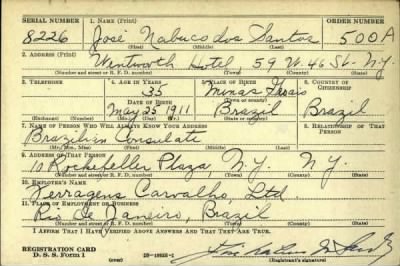 SERIAL NUMBER 1. NAME (Print) ORDER NUMBER
8226 Jose Nabuco dos Santos 500A
(First) (Middle) (Last)
2. ADDRESS (Print)
Wentworth Hotel, 59 W. 46 St. N.Y.
(Number and street or R. F. D. number) (Town) (County) (State)
3. TELEPHONE 4. AGE IN YEARS 5. PLACE OF BIRTH 6. COUNTRY OF CITIZENSHIP
35 Minas Geraes
DATE OF BIRTH (Town or county)
May 25 1911 Brazil Brazil
(Exchange) (Number) (Mo.) (Day) (Yr.) (State or country)
7. NAME OF PERSON WHO WILL ALWAYS KNOW YOUR ADDRESS 8. RELATIONSHIP OF THAT PERSON
Brazilian Consulate
(Mr., Mrs., Miss) (First) (Middle) (Last)
9. ADDRESS OF THAT PERSON
10 Rockefeller Plaza, N.Y. N.Y.
(Number and street or R. F. D. number) (Town) (County) (State)
10. EMPLOYER'S NAME
Ferragens Carvalho, Ltd.
11. PLACE OF EMPLOYMENT OR BUSINESS
Rio De Janeiro, Brazil
(Number and street or R. F. D. number) (Town) (County) (State)
I AFFIRM THAT I HAVE VERIFIED ABOVE ANSWERS AND THAT THEY ARE TRUE.
REGISTRATION CARD
D. S. S. Form 1
(over) (Registrant's signature)